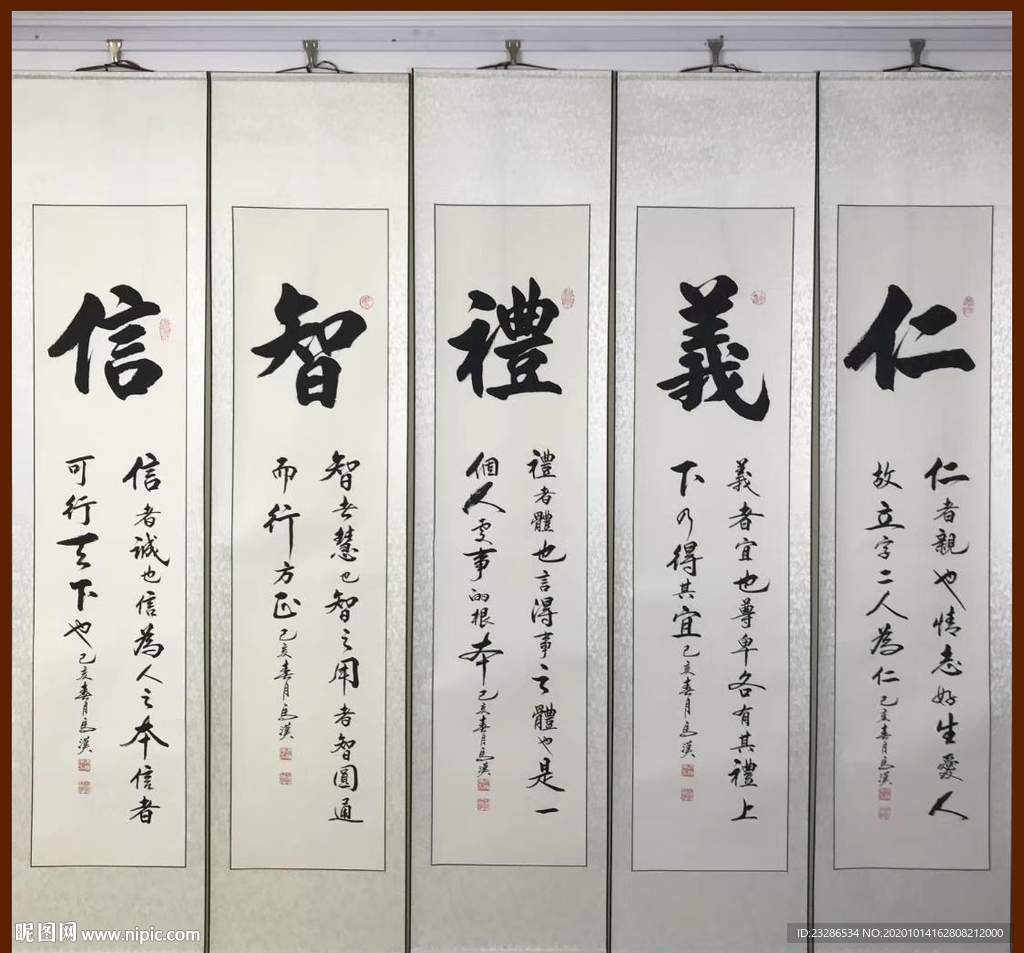 仁
仁者親也情志好生愛人
故立字二人為仁己亥春月馬漢
義
義者宜也尊卑各有其禮上
下乃得其宜己亥春月馬漢
禮
禮者體也言得事之體也是一
個人處事的根本己亥春月馬漢
智
智者慧也智之用者智圓通
而行方正己亥春月馬漢
信
信者誠也信為人之本信者
可行天下也己亥春月馬漢
昵图网 www.nipic.com
ID:23286534 NO:20201014162808212000